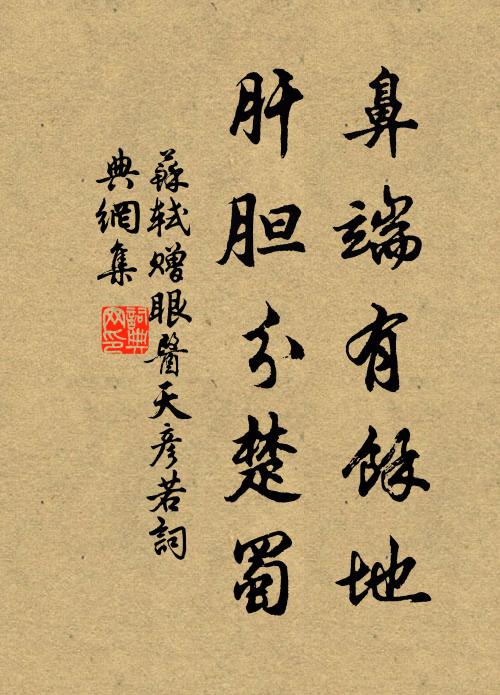 鼻端有餘地
肝胆分楚蜀
蘇軾赠眼醫天彦若詞
典網集
詞典
网印